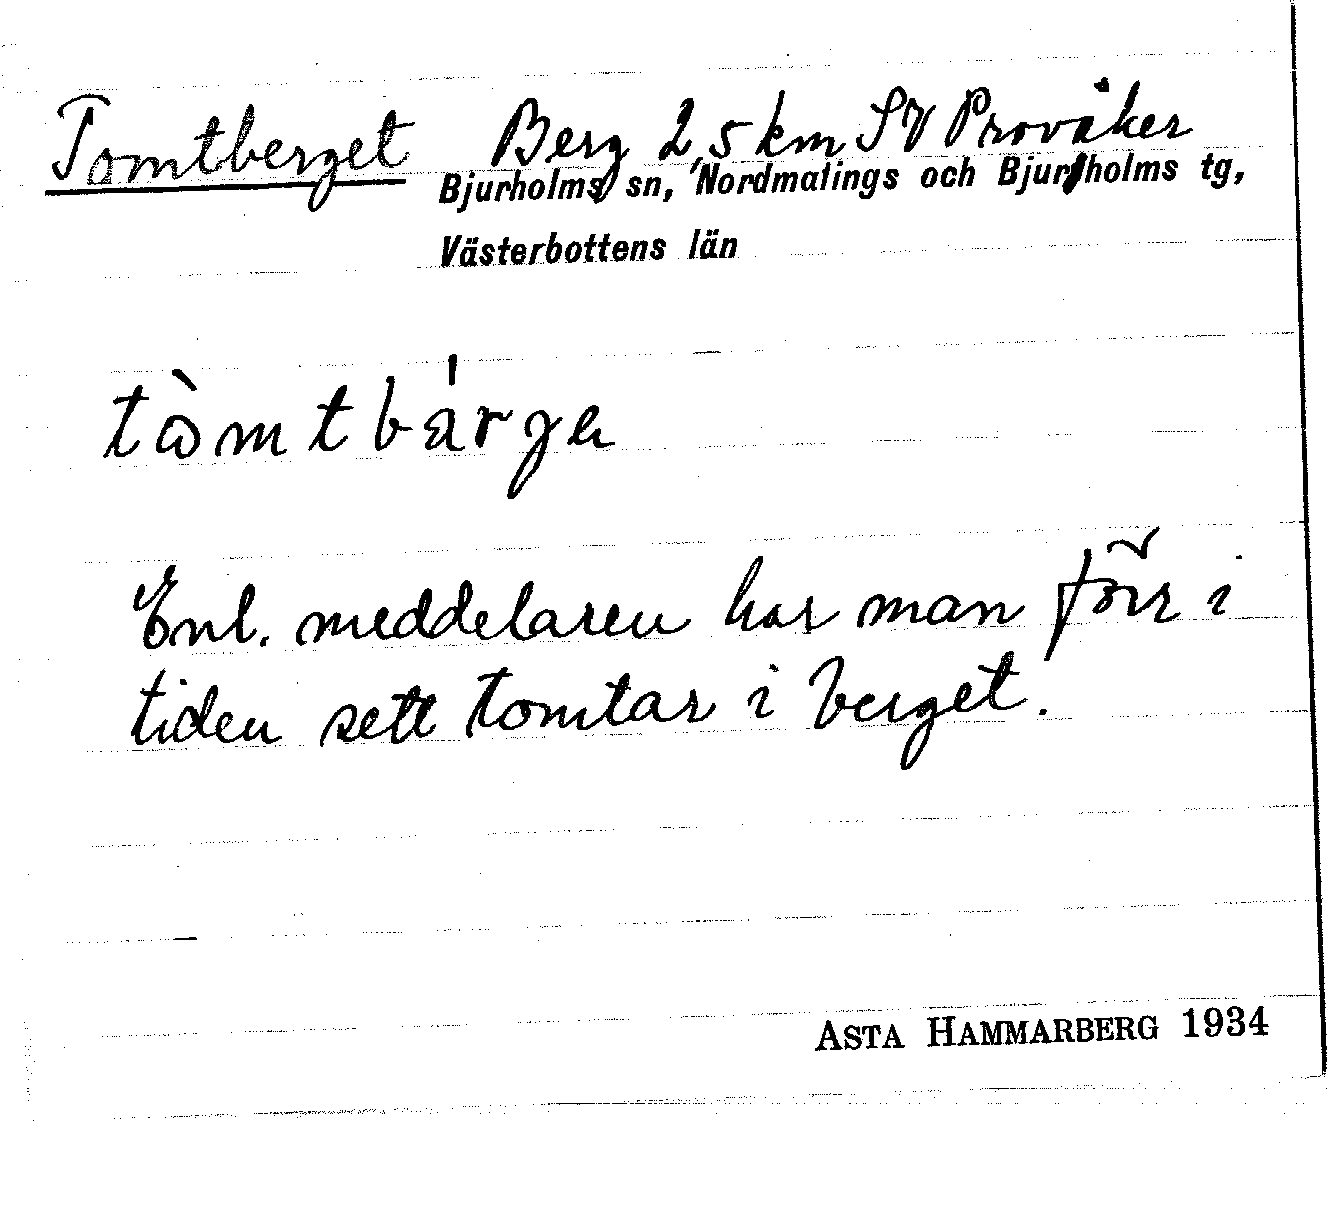 Tomtberget Berg 2,5 km SV Provåker
Bjurholms sn, Nordmalings och Bjurholms tg,
Västerbottens län
tòmtbárgɐ
Enl. meddelaren har man förr i
tiden sett tomtar i berget.
ASTA HAMMARBERG 1934